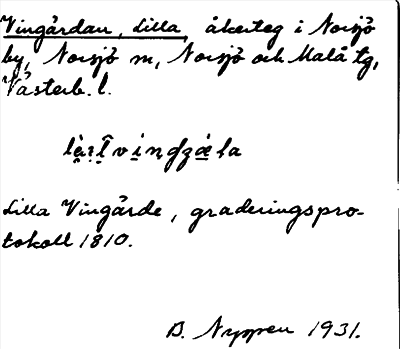 Vingårdan, Lilla, åkerteg i Norsjö
by, Norsjö m, Norsjö och Malå tg,
Västerb. l.
Lilla Vingårde, graderingspro-
tokoll 1810.
B. Nyppen 1931.